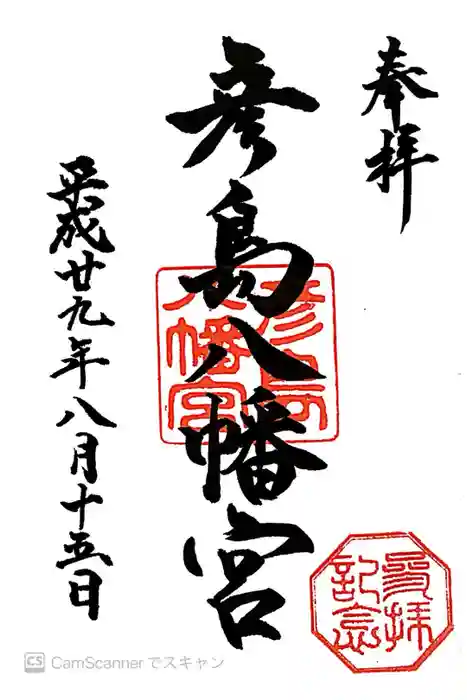 奉拝
彦島八幡宮
彦島八幡宮
平成廿九年八月十五日
参拝記念
CS CamScanner でスキャン